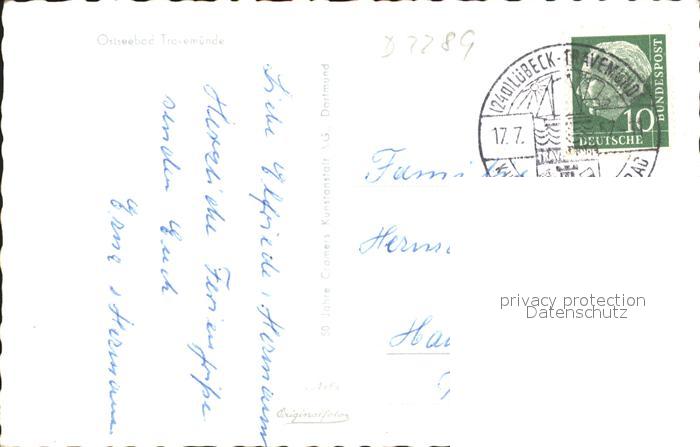 Ostseebad Travemünde
D 2289
Liebe Elfriede, Hermann
Herzliche Feriengrüße
senden Euch
Erna & Hermann
50 Jahre Cramers Kunstanstalt KG Dortmund
Originalfoto
(240) LÜBECK-TRAVEMÜNDE
17. 7.
BUNDESPOST
10
DEUTSCHE
Familie
privacy protection
Datenschutz